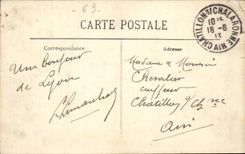 63
CARTE POSTALE
CHATILLON S/ CHALARONNE AIN
10 15
18-8
Correspondance
Adresse
Un bonjour
de Lyon
Madame & Monsieur
Chevalier
Coiffeur
Chatillon s/ Chne
Ain